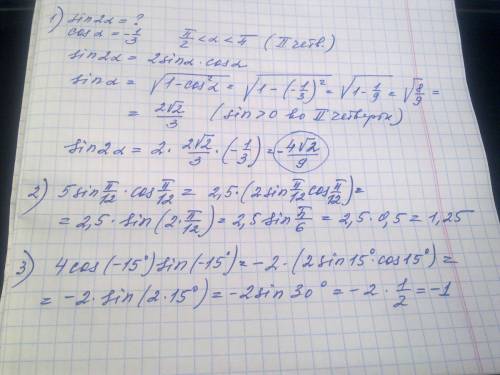 1) sin2α = ?
cosα = -1/3   π/2 < α < π (II четв.)
sin2α = 2sinα·cosα
sinα = √(1-cos²α) = √(1-(-1/3)²) = √(1-1/9) = √(8/9) =
= 2√2/3 (sin>0 во II четверти)
sin2α = 2 · 2√2/3 · (-1/3) = -4√2/9
2) 5sin π/12 · cos π/12 = 2,5·(2sin π/12 cos π/12) =
= 2,5 · sin(2·π/12) = 2,5 sin π/6 = 2,5 · 0,5 = 1,25
3) 4cos(-15°)sin(-15°) = -2·(2sin15°·cos15°) =
= -2·sin(2·15°) = -2sin30° = -2 · 1/2 = -1